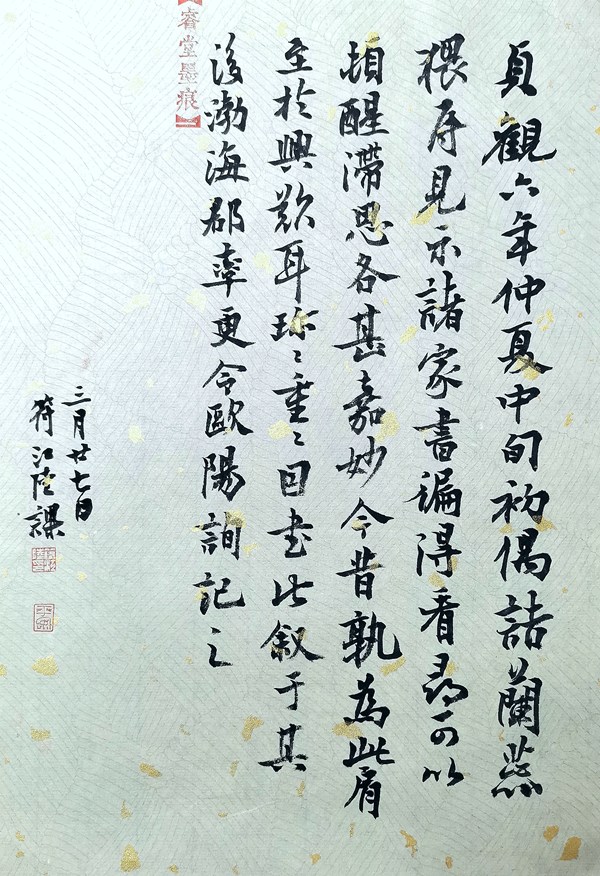 貞觀六年仲夏中旬初偶詰蘭蕊
猥辱見示諸家書遍得看尋可以
頓醒滯思各甚嘉妙今昔孰為此屑
至於興歎耳珎〻重〻因書此叙于其
後渤海郡率更令歐陽詢記之
三月廿七日
符江陸課
【睿堂墨痕】